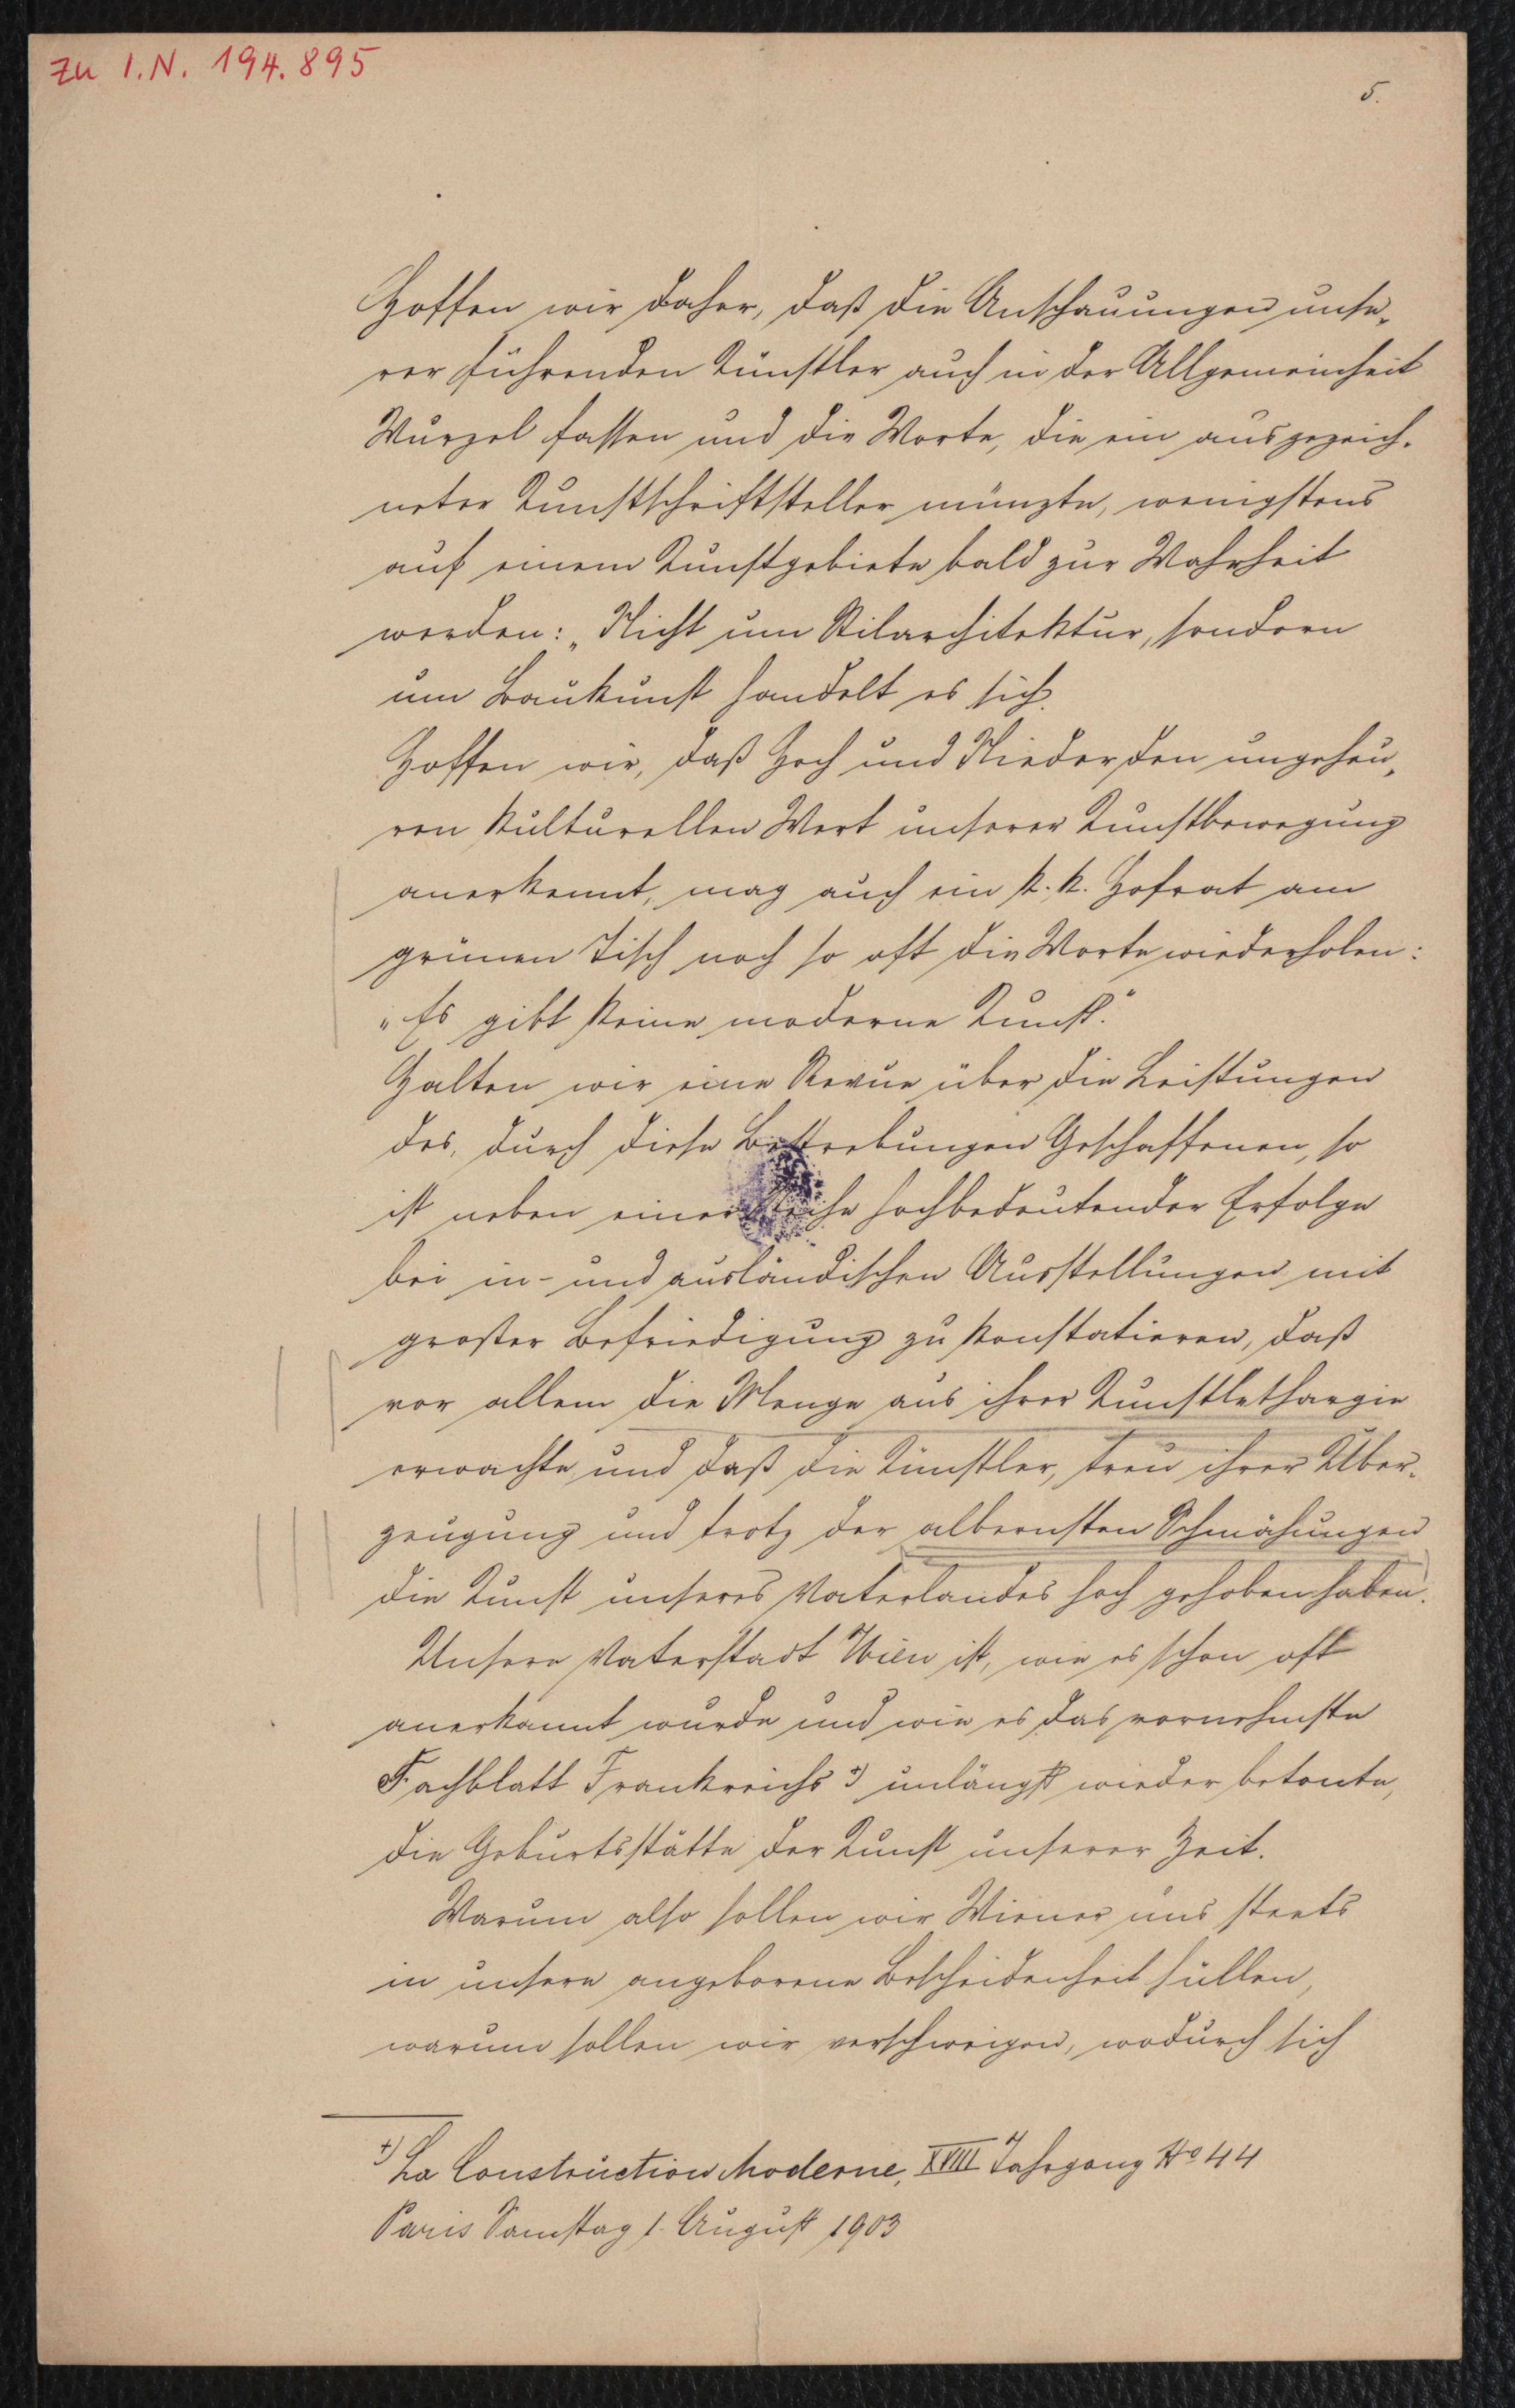 zu I.N. 194.895
5.
Hoffen wir daher, daß die Anschauungen unse„
rer führenden Künstler auch in der Allgemeinheit
Wurzel fassen und die Worte, die ein ausgezeich-
neter Kunstschriftsteller münzte, wenigstens
auf einem Kunstgebiete bald zur Wahrheit
werden: „Nicht um Stilarchitektur, sondern
um Baukunst handelt es sich.
Hoffen wir, daß Hoch und Nieder den ungeheu„
ren kulturellen Wert unserer Kunstbewegung
anerkennt, mag auch ein k. k. Hofrat am
grünen Tisch noch so oft die Worte wiederholen:
„Es gibt keine moderne Kunst."
Halten wir eine Revue über die Leistungen
des, durch diese Bestrebungen Geschaffenen, so
ist neben einer Reihe hochbedeutender Erfolge
bei in- und ausländischen Ausstellungen mit
großer Befriedigung zu konstatieren, daß
vor allem die Menge aus ihrer Kunstlethargie
erwachte und daß die Künstler, treu ihrer Über-
zeugung und trotz der albernsten Schmähungen
die Kunst unseres Vaterlandes hoch gehoben haben.
Unsere Vaterstadt Wien ist, wie es schon oft
anerkannt wurde und wie es das vornehmste
Fachblatt Frankreichs +) unlängst wieder betonte,
die Geburtsstätte der Kunst unserer Zeit.
Warum also sollen wir Wiener uns steets
in unsere angeborene Bescheidenheit hüllen,
warum sollen wir verschweigen, wodurch sich
+) La Construction Moderne, XVIII Jahrgang No 44
Paris Samstag 1. August 1903